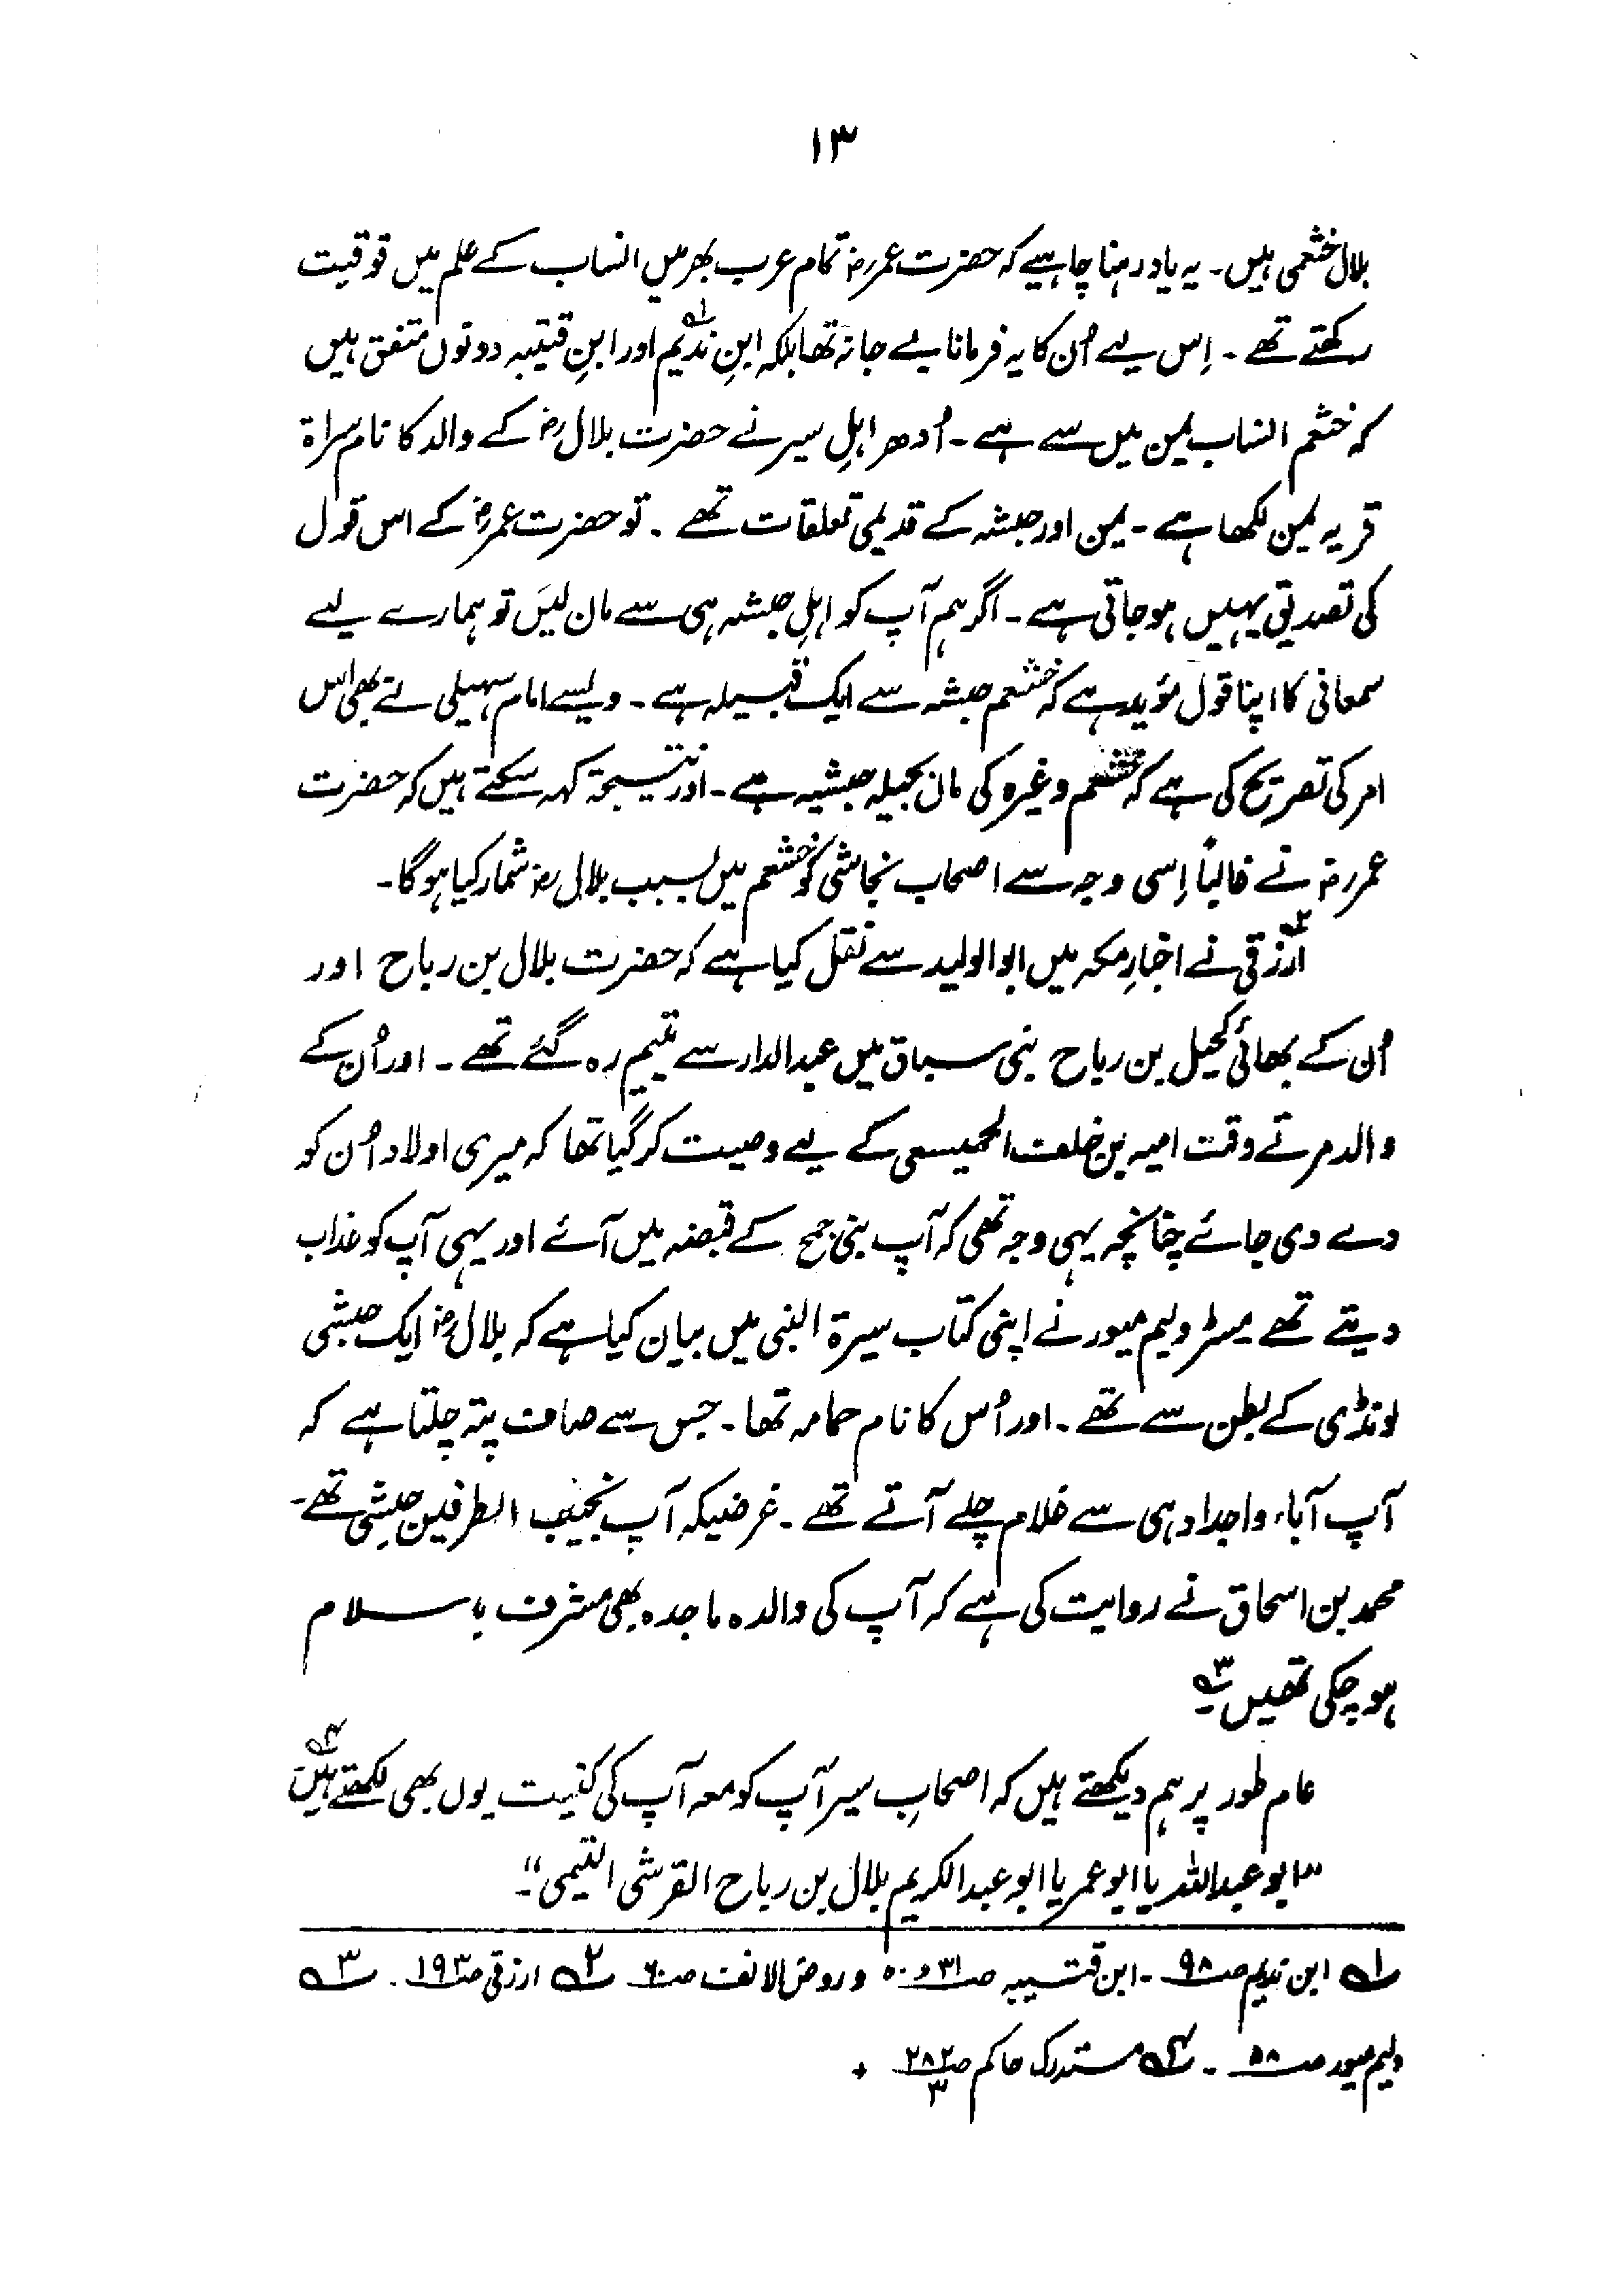 ۱۳
بلال خثعمی ہیں۔ یہ یاد رہنا چاہیے کہ حضرت عمررض تمام عرب بھر میں انساب کے علم میں فوقیت
رکھتے تھے۔ اِس لیے اُن کا یہ فرمانا بے جا نہ تھا بلکہ ابنِ ندیم۱ اور ابنِ قتیبہ دونوں متفق ہیں
کہ خثعم انساب یمن میں سے ہے۔ اُدھر اہلِ سیر نے حضرت بلال رض کے والد کا نام سراۃ
قریہ یمن لکھا ہے۔ یمن اور حبشہ کے قدیمی تعلقات تھے۔ تو حضرت عمررض کے اس قول
کی تصدیق یہیں ہو جاتی ہے۔ اگر ہم آپ کو اہلِ حبشہ ہی سے مان لیں تو ہمارے لیے
سمعانی کا اپنا قول مؤید ہے کہ خثعم حبشہ سے ایک قبیلہ ہے۔ ویسے امام سہیلی نے بھی اس
امر کی تصریح کی ہے کہ خثعم وغیرہ کی ماں بجیلہ حبشیہ ہے۔ اور نتیجۃ کہہ سکتے ہیں کہ حضرت
عمررض نے غالباً اِسی وجہ سے اصحاب نجاشی کو خثعم میں بسبب بلال رض شمار کیا ہو گا۔
ارزقی۲ نے اخبارِ مکہ میں ابوالولید سے نقل کیا ہے کہ حضرت بلال بن رباح اور
اُن کے بھائی کحیل بن رباح بنی سباق میں عبدالدار سے یتیم رہ گئے تھے۔ اور اُن کے
والد مرتے وقت امیہ بن خلف الجمیسعی کے لیے وصیت کر گیا تھا کہ میری اولاد اُن کو
دے دی جائے چنانچہ یہی وجہ تھی کہ آپ بنی جمح کے قبضہ میں آئے اور یہی آپ کو عذاب
دیتے تھے مسٹر ولیم میور نے اپنی کتاب سیرۃ النبی میں بیان کیا ہے کہ بلال رض ایک حبشی
لونڈی کے بطن سے تھے۔ اور اُس کا نام حمامہ تھا۔ جس سے صاف پتہ چلتا ہے کہ
آپ آباء واجداد ہی سے غلام چلے آتے تھے۔ غرضیکہ آپ نجیب الطرفین حبشی تھے۔
محمد بن اسحاق نے روایت کی ہے کہ آپ کی والدہ ماجدہ بھی مشرف باسلام
ہو چکی تھیں۔۳
عام طور پر ہم دیکھتے ہیں کہ اصحابِ سیر آپ کو معہ آپ کی کنیت یوں بھی لکھتے ہیں۴
"ابو عبداللہ یا ابو عمر یا ابو عبدالکریم بلال بن رباح القرشی التیمی"۔
۱ ابن ندیم ص۹۸۔ ابن قتیبہ ص۳۱ و ۵۰ و روض الانف ص۶۰ ۲ ارزقی ص۱۹۳۔ ۳
ولیم میور ص۵۸۔ ۴ مستدرک حاکم ص۲۸۲/۳ +